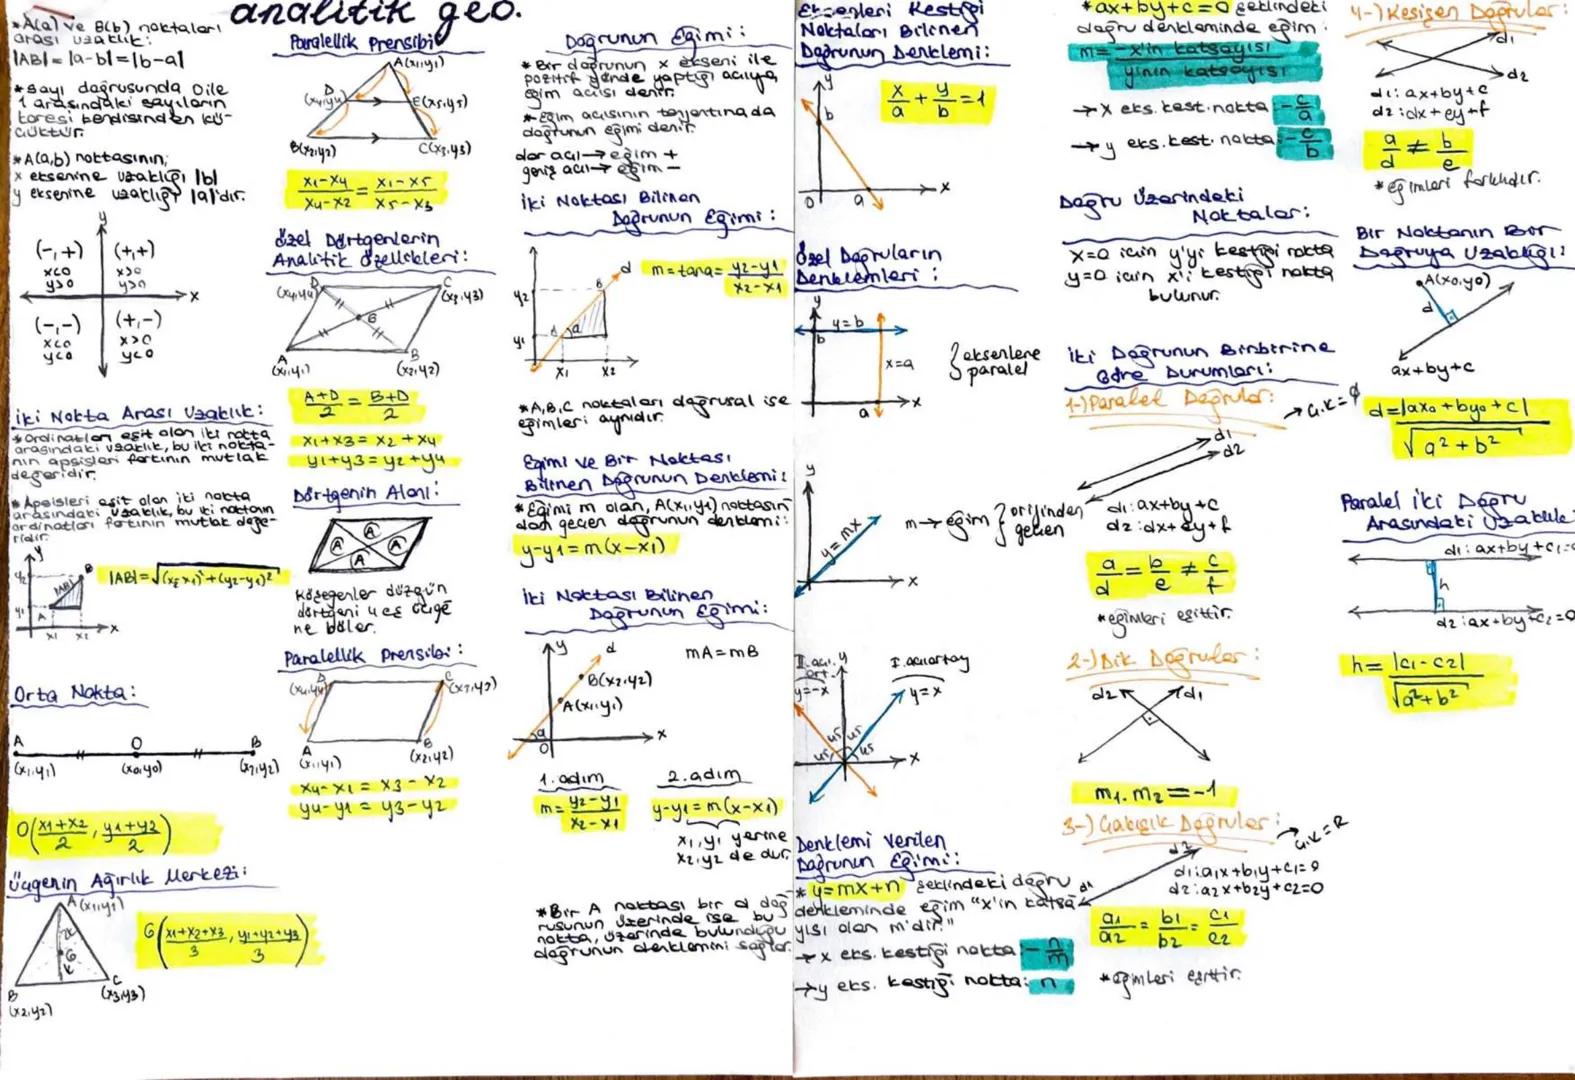 analitik geo.
*A(a) ve B(b) noktaları
arası uzaklık:
|AB|=|a-b|=|b-a|
*sayı doğrusunda 0 ile
1 arasındaki sayıların
karesi kendisinden kü-
çüktür.
*A(a,b) noktasının;
x eksenine uzaklığı |b|
y eksenine uzaklığı |a|'dır.
y
(-,+)
x<0
y>0
(+,+)
x>0
y>0
x
(-,-)
x<0
y<0
(+,-)
x>0
y<0
İki Nokta Arası Uzaklık:
*Ordinatları eşit olan iki nokta
arasındaki uzaklık, bu iki nokta-
nın apsisleri farkının mutlak
değeridir.
*Apsisleri eşit olan iki nokta
arasındaki uzaklık, bu iki noktanın
ordinatları farkının mutlak değe-
ridir.
y
y2
y1
|AB|
A
B
x1 x2 x
|AB|=√(x2-x1)²+(y2-y1)²
Orta Nokta:
A O B
(x1,y1) (x0,y0) (x2,y2)
O(x1+x2/2, y1+y2/2)
Üçgenin Ağırlık Merkezi:
A(x1,y1)
2k
G
k
B C
(x2,y2) (x3,y3)
G(x1+x2+x3/3, y1+y2+y3/3)
Paralellik Prensibi
A(x1,y1)
D
(x4,y4) E(x5,y5)
B(x2,y2) C(x3,y3)
x1-x4/x4-x2 = x1-x5/x5-x3
Özel Dörtgenlerin
Analitik Özellikleri:
D C
(x4,y4) (x3,y3)
G
A B
(x1,y1) (x2,y2)
A+D/2 = B+D/2
x1+x3=x2+x4
y1+y3=y2+y4
Dörtgenin Alanı:
A
A A
A
Köşegenler düzgün
dörtgeni 4 eş üçge
ne böler.
Paralellik Prensibi:
D C
(x4,y4) (x3,y3)
A B
(x1,y1) (x2,y2)
x4-x1 = x3-x2
y4-y1 = y3-y2
Doğrunun Eğimi:
*Bir doğrunun x ekseni ile
pozitif yönde yaptığı açıya,
eğim açısı denir.
*Eğim açısının tanjantına da
doğrunun eğimi denir.
dar açı→eğim +
geniş açı→eğim -
İki Noktası Bilinen
Doğrunun Eğimi:
d
B
y2
y1
A
a
x1 x2
m=tana=y2-y1/x2-x1
*A,B,C noktaları doğrusal ise
eğimleri aynıdır.
Eğimi ve Bir Noktası
Bilinen Doğrunun Denklemi:
*Eğimi m olan, A(x1,y1) noktasın
dan geçen doğrunun denklemi:
y-y1=m(x-x1)
İki Noktası Bilinen
Doğrunun Eğimi:
y
d
B(x2,y2)
A(x1,y1)
a
0
x
mA=mB
1. adım
m=y2-y1/x2-x1
2. adım
y-y1=m(x-x1)
x1,y1 yerine
x2,y2 de dur.
*Bir A noktası bir d doğ
rusunun üzerinde ise bu
nokta, üzerinde bulunduğu
doğrunun denklemini sağlar.
Eksenleri Kestiği
Noktaları Bilinen
Doğrunun Denklemi:
y
b
0 a x
x/a + y/b =1
Özel Doğruların
Denklemleri:
y
y=b
b
x=a
a x
eksenlere
paralel
y
y=mx
x
m→eğim
orijinden
geçen
II. açı
ort.
y=-x
y
I. açıortay
y=x
45 45 45 45
x
Denklemi Verilen
Doğrunun Eğimi:
*y=mx+n şeklindeki doğru
denkleminde eğim "x'in katsa
yısı olan m'dir."
→x eks. kestiği nokta: -n/m
→y eks. kestiği nokta: n
*ax+by+c=0 şeklindeki
doğru denkleminde eğim:
m=-x'in katsayısı
y'nin katsayısı
→x eks. kest. nokta: -c/a
→y eks. kest. nokta: -c/b
Doğru Üzerindeki
Noktalar:
x=0 için y'yi kestiği nokta
y=0 için x'i kestiği nokta
bulunur.
İki Doğrunun Birbirine
Göre Durumları:
1-)Paralel Doğrular:
→Ç.K=∅
d1
d2
d1:ax+by+c
d2:dx+ey+f
a/d = b/e ≠ c/f
*eğimleri eşittir.
2-)Dik Doğrular:
d2 d1
m1.m2=-1
3-)Çakışık Doğrular:
→Ç.K=R
d2
d1
d1:a1x+b1y+c1=0
d2:a2x+b2y+c2=0
a1/a2 = b1/b2 = c1/c2
*eğimleri eşittir.
4-)Kesişen Doğrular:
d1
d2
d1:ax+by+c
d2:dx+ey+f
a/d ≠ b/e
*eğimleri farklıdır.
Bir Noktanın Bir
Doğruya Uzaklığı:
A(x0,y0)
d
ax+by+c
d=|ax0+by0+c|/√a²+b²
Paralel İki Doğru
Arasındaki Uzaklık:
d1:ax+by+c1=0
h
d2:ax+by+c2=0
h=|c1-c2|/√a²+b²